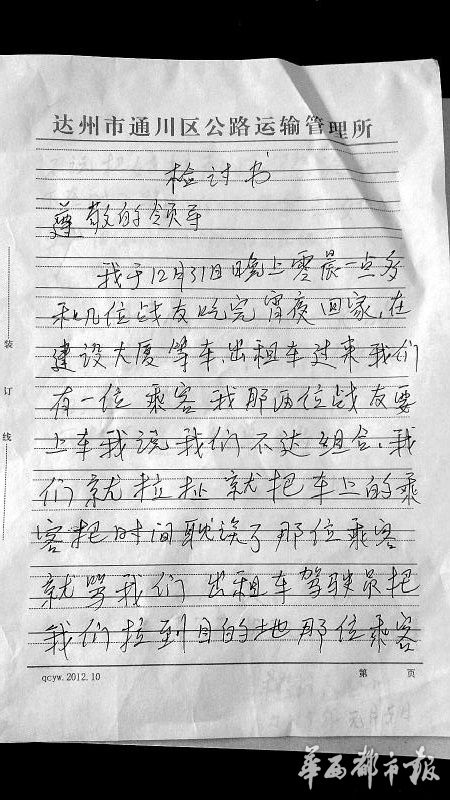 达州市通川区公路运输管理所
检讨书
尊敬的领导
我于12月31日晚上零晨一点多
和几位战友吃完宵夜回家,在
建设大厦等车,出租车过来我们
有一位乘客我那两位战友要
上车我说我们不达组合,我
们就拉扯就把车上的乘
客把时间耽误了那位乘客
就骂我们 出租车驾驶员把
我们拉到目的地那位乘客
装订线
qcyw.2012.10 第 页
华西都市报